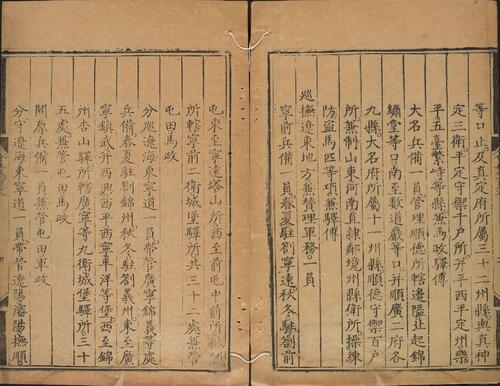 等口止及真定府所屬三十二州縣與真神
定三衛平定守禦千戶所并平西平定州樂
平五臺繁峙等縣兼馬政驛傳
大名兵備一員管理順德所轄邊隘北起錦
繡堂等口南至數道巖等口并順廣二府各
九縣大名府所屬十一州縣順德守禦百戶
所兼制山東河南直隸鄰境州縣衛所操練
防盜馬匹等項兼驛傳
巡撫遼東地方兼贊理軍務一員
寧前兵備一員春夏駐劄寧遠秋冬駐劄前
屯東至寧遠塔山所西至前屯中前所城
所轄寧前二衛城堡驛所共三十二處兼管
屯田馬政
分巡遼海東寧道一員帶管廣寧錦義等處
兵備春夏駐劄錦州秋冬駐劄義州東至廣
寧鎮武西興西平西寧平洋等堡西至錦
州杏山驛所轄廣寧等九衛城堡驛所三十
五處兼管屯田馬政
開原兵備一員兼管屯田軍政
分守遼海東寧道一員帶管遼陽瀋陽撫順